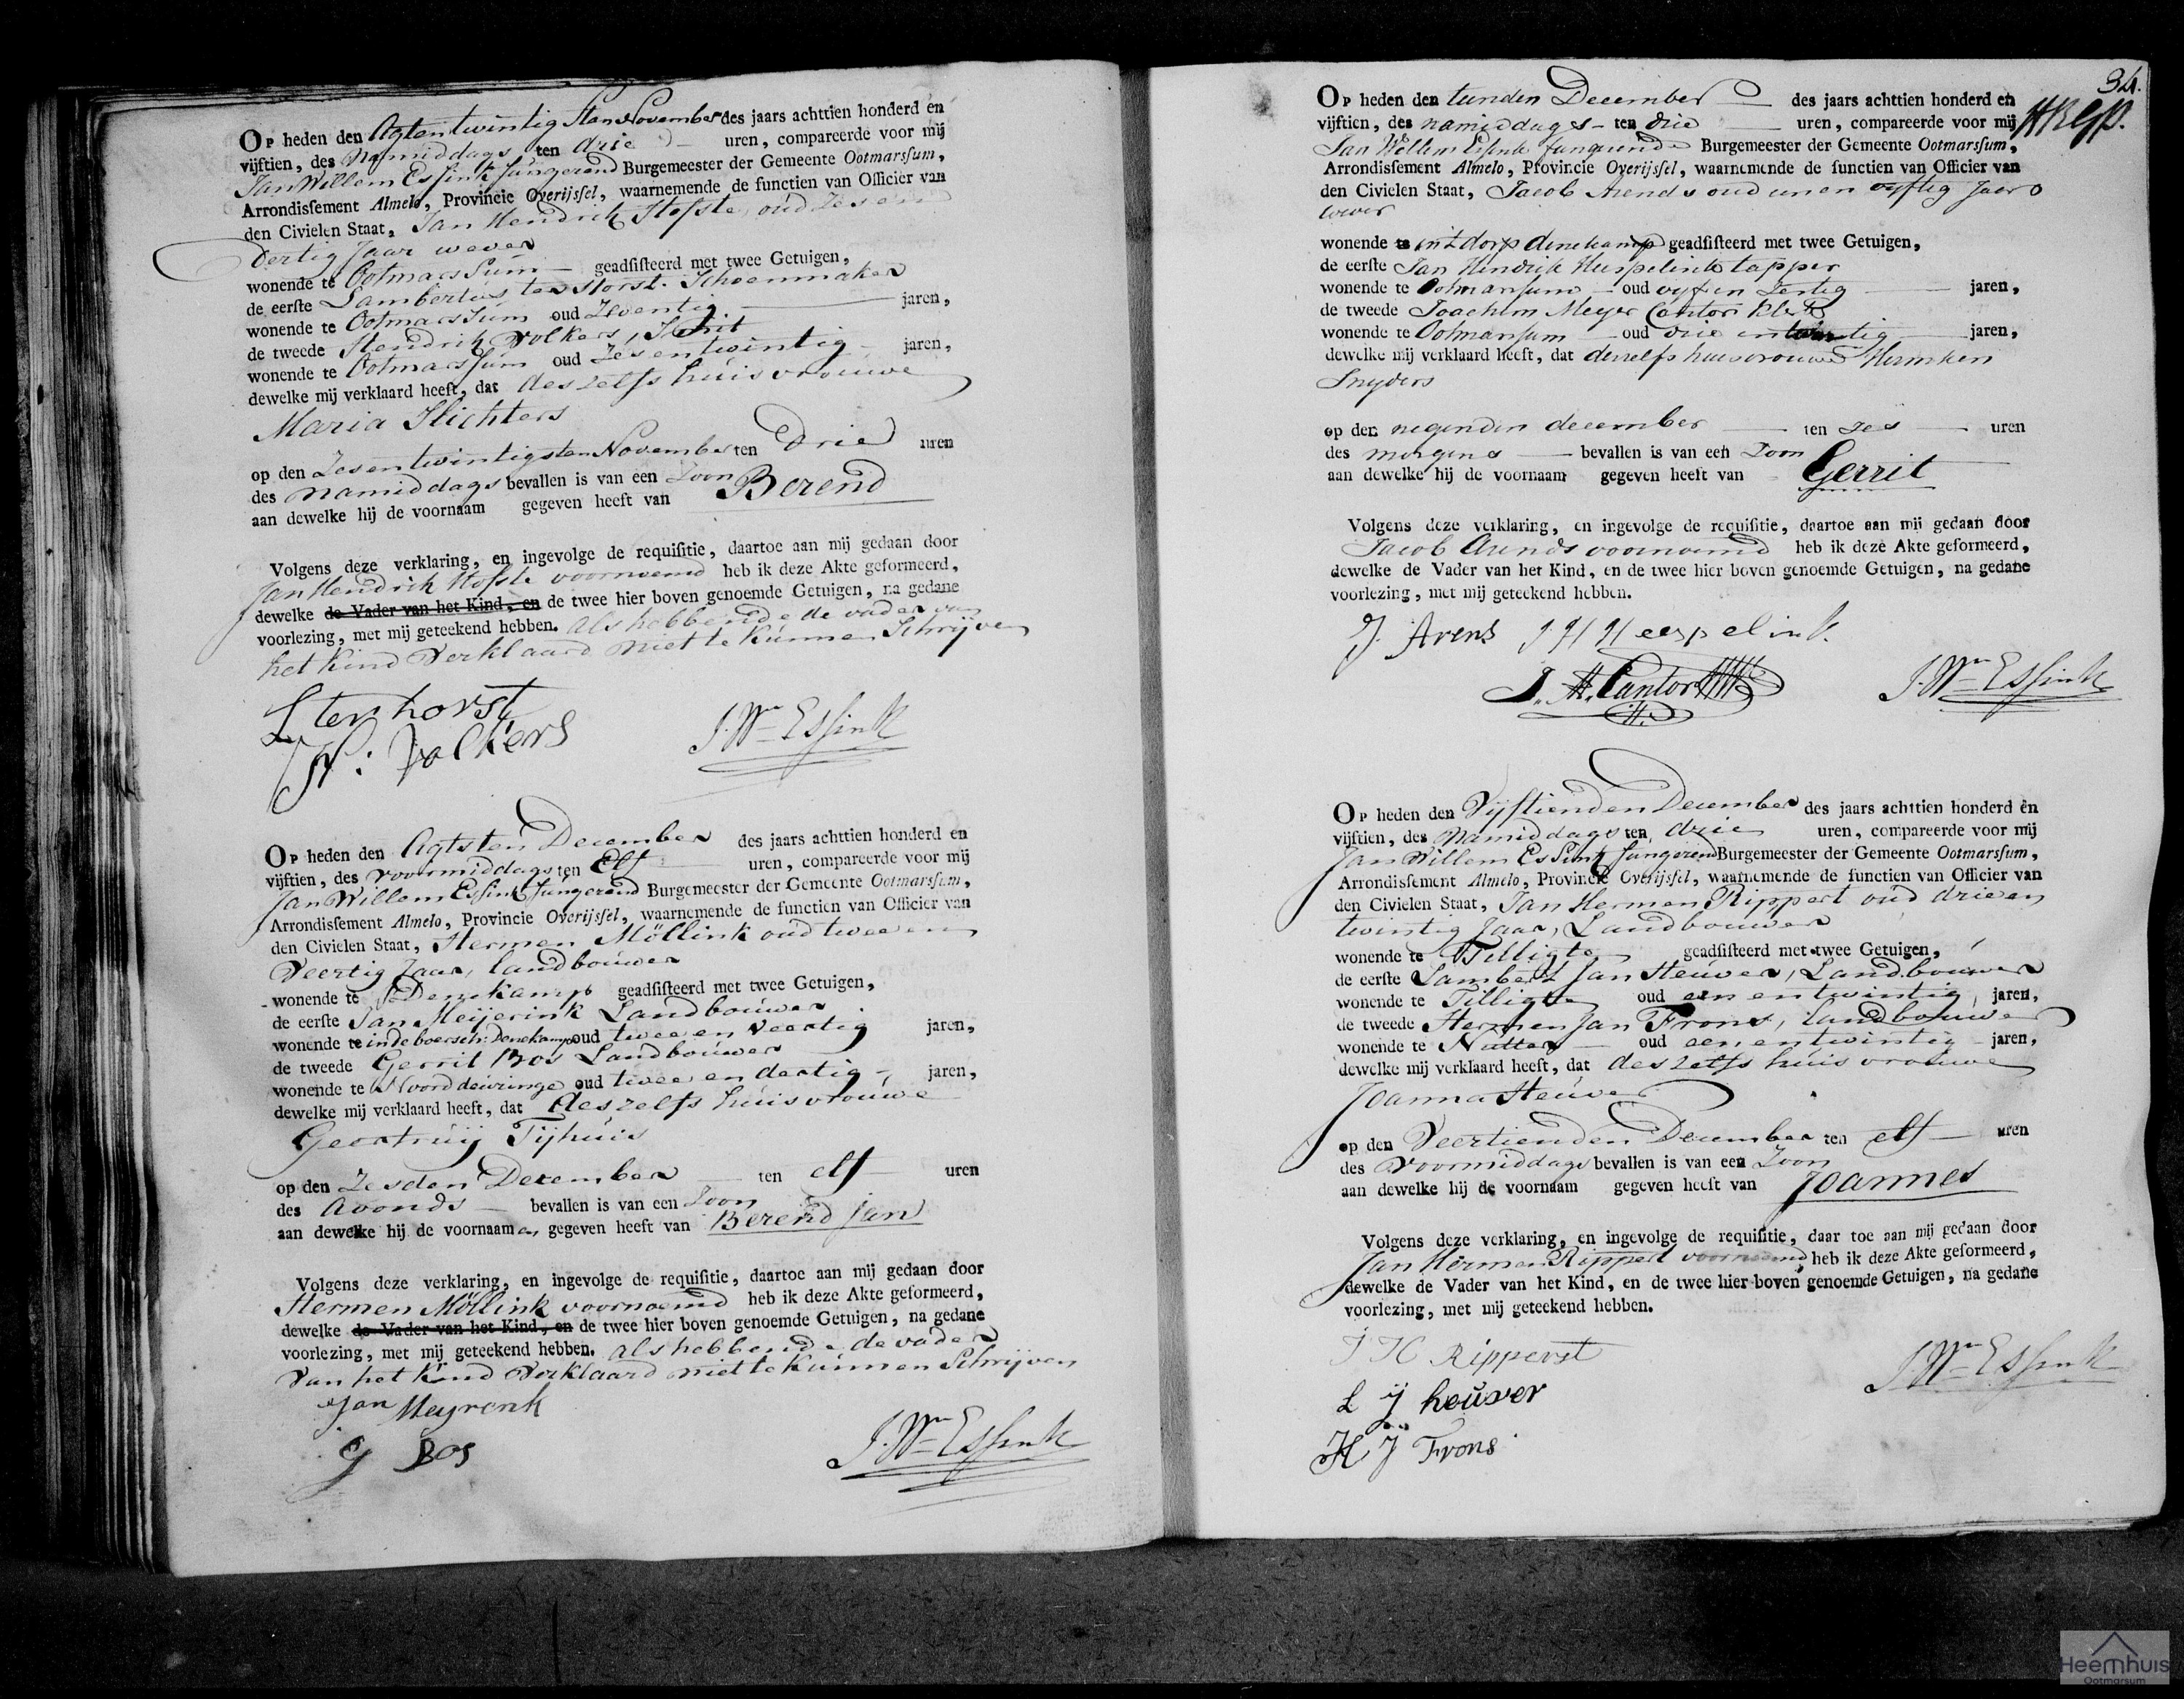 Op heden den Agtentwintigsten November des jaars achttien honderd en
vijftien, des Namiddags ten drie uren, compareerde voor mij
Jan Willem Essink fungerend Burgemeester der Gemeente Ootmarsum,
Arrondissement Almelo, Provincie Overijssel, waarnemende de functien van Officier van
den Civielen Staat, Jan Hendrik Hofste, oud Zesen
dertig Jaar wever
wonende te Ootmarssum geadsisteerd met twee Getuigen,
de eerste Lambertus ter Horst Schoenmaker
wonende te Ootmarssum oud Zeventig jaren,
de tweede Hendrik Volkers,
wonende te Ootmarssum oud Zesentwintig jaren,
dewelke mij verklaard heeft, dat deszelfs huisvrouwe
Maria Slichters
op den Zesentwintigsten November ten Drie uren
des namiddags bevallen is van een Zoon
aan dewelke hij de voornaam gegeven heeft van Berend
Volgens deze verklaring, en ingevolge de requisitie, daartoe aan mij gedaan door
Jan Hendrik Hofste voornoemd heb ik deze Akte geformeerd,
dewelke de Vader van het Kind, en de twee hier boven genoemde Getuigen, na gedane
voorlezing, met mij geteekend hebben. als hebbende de vader van
het Kind Verklaard niet te kunnen Schrijven
L ter horst
H: Volkers
J. Wm Essink
Op heden den Agtsten December des jaars achttien honderd en
vijftien, des voormiddags ten Elf uren, compareerde voor mij
Jan Willem Essink fungerend Burgemeester der Gemeente Ootmarsum,
Arrondissement Almelo, Provincie Overijssel, waarnemende de functien van Officier van
den Civielen Staat, Hermen Möllink oud twee en
Veertig Jaar, landbouwer
wonende te Denekamp geadsisteerd met twee Getuigen,
de eerste Jan Meijerink Landbouwer
wonende te in de boersch: Denekamp oud twee en Veertig jaren,
de tweede Gerrit Bos Landbouwer
wonende te Noorddeuringe oud twee en dertig jaren,
dewelke mij verklaard heeft, dat deszelfs huisvrouwe
Geertruij Tijhuis
op den Zesden December ten elf uren
des Avonds bevallen is van een Zoon
aan dewelke hij de voornaamen gegeven heeft van Berend Jan
Volgens deze verklaring, en ingevolge de requisitie, daartoe aan mij gedaan door
Hermen Möllink voornoemd heb ik deze Akte geformeerd,
dewelke de Vader van het Kind, en de twee hier boven genoemde Getuigen, na gedane
voorlezing, met mij geteekend hebben. als hebbende de vader
Van het Kind Verklaard niet te kunnen Schrijven
Jan Meyrenk
G Bos
J. Wm Essink
34.
Op heden den tienden December des jaars achttien honderd en
vijftien, des namiddags ten drie uren, compareerde voor mij
Jan Willem Essink fungerende Burgemeester der Gemeente Ootmarsum,
Arrondissement Almelo, Provincie Overijssel, waarnemende de functien van Officier van
den Civielen Staat, Jacob Arends oud een en vyftig Jaar
wever
wonende te in t dorp denekamp geadsisteerd met twee Getuigen,
de eerste Jan Hendrik Heespelink tapper
wonende te Ootmarsum oud vyf en Zestig jaren,
de tweede Joachim Meyer Cantor klerk
wonende te Ootmarsum oud drie en twintig jaren,
dewelke mij verklaard heeft, dat deszelfs huisvrouwe Hermken
Snyders
op den negenden december ten zes uren
des morgens bevallen is van een Zoon
aan dewelke hij de voornaam gegeven heeft van Gerrit
Volgens deze verklaring, en ingevolge de requisitie, daartoe aan mij gedaan door
Jacob Arends voornoemd heb ik deze Akte geformeerd,
dewelke de Vader van het Kind, en de twee hier boven genoemde Getuigen, na gedane
voorlezing, met mij geteekend hebben.
J. Arens J H Heespelink.
J. M. Cantor
J. Wm Essink
Op heden den Vijftienden December des jaars achttien honderd en
vijftien, des Namiddags ten drie uren, compareerde voor mij
Jan Willem Essink fungerend Burgemeester der Gemeente Ootmarsum,
Arrondissement Almelo, Provincie Overijssel, waarnemende de functien van Officier van
den Civielen Staat, Jan Hermen Rippert oud drie en
twintig Jaar, Landbouwer
wonende te Tilligte geadsisteerd met twee Getuigen,
de eerste Lambert Jan Heuver, Landbouwer
wonende te Tilligte oud een en twintig jaren,
de tweede Hermen Jan Frons, landbouwer
wonende te Nutter oud een en twintig jaren,
dewelke mij verklaard heeft, dat deszelfs huisvrouwe
Joanna Heuver
op den Veertienden December ten elf uren
des Voormiddags bevallen is van een Zoon
aan dewelke hij de voornaam gegeven heeft van Joannes
Volgens deze verklaring, en ingevolge de requisitie, daar toe aan mij gedaan door
Jan Hermen Rippert voornoemd heb ik deze Akte geformeerd,
dewelke de Vader van het Kind, en de twee hier boven genoemde Getuigen, na gedane
voorlezing, met mij geteekend hebben.
J H Ripperst
L J heuver
H J Frons
J. Wm Essink
Heemhuis
Ootmarsum